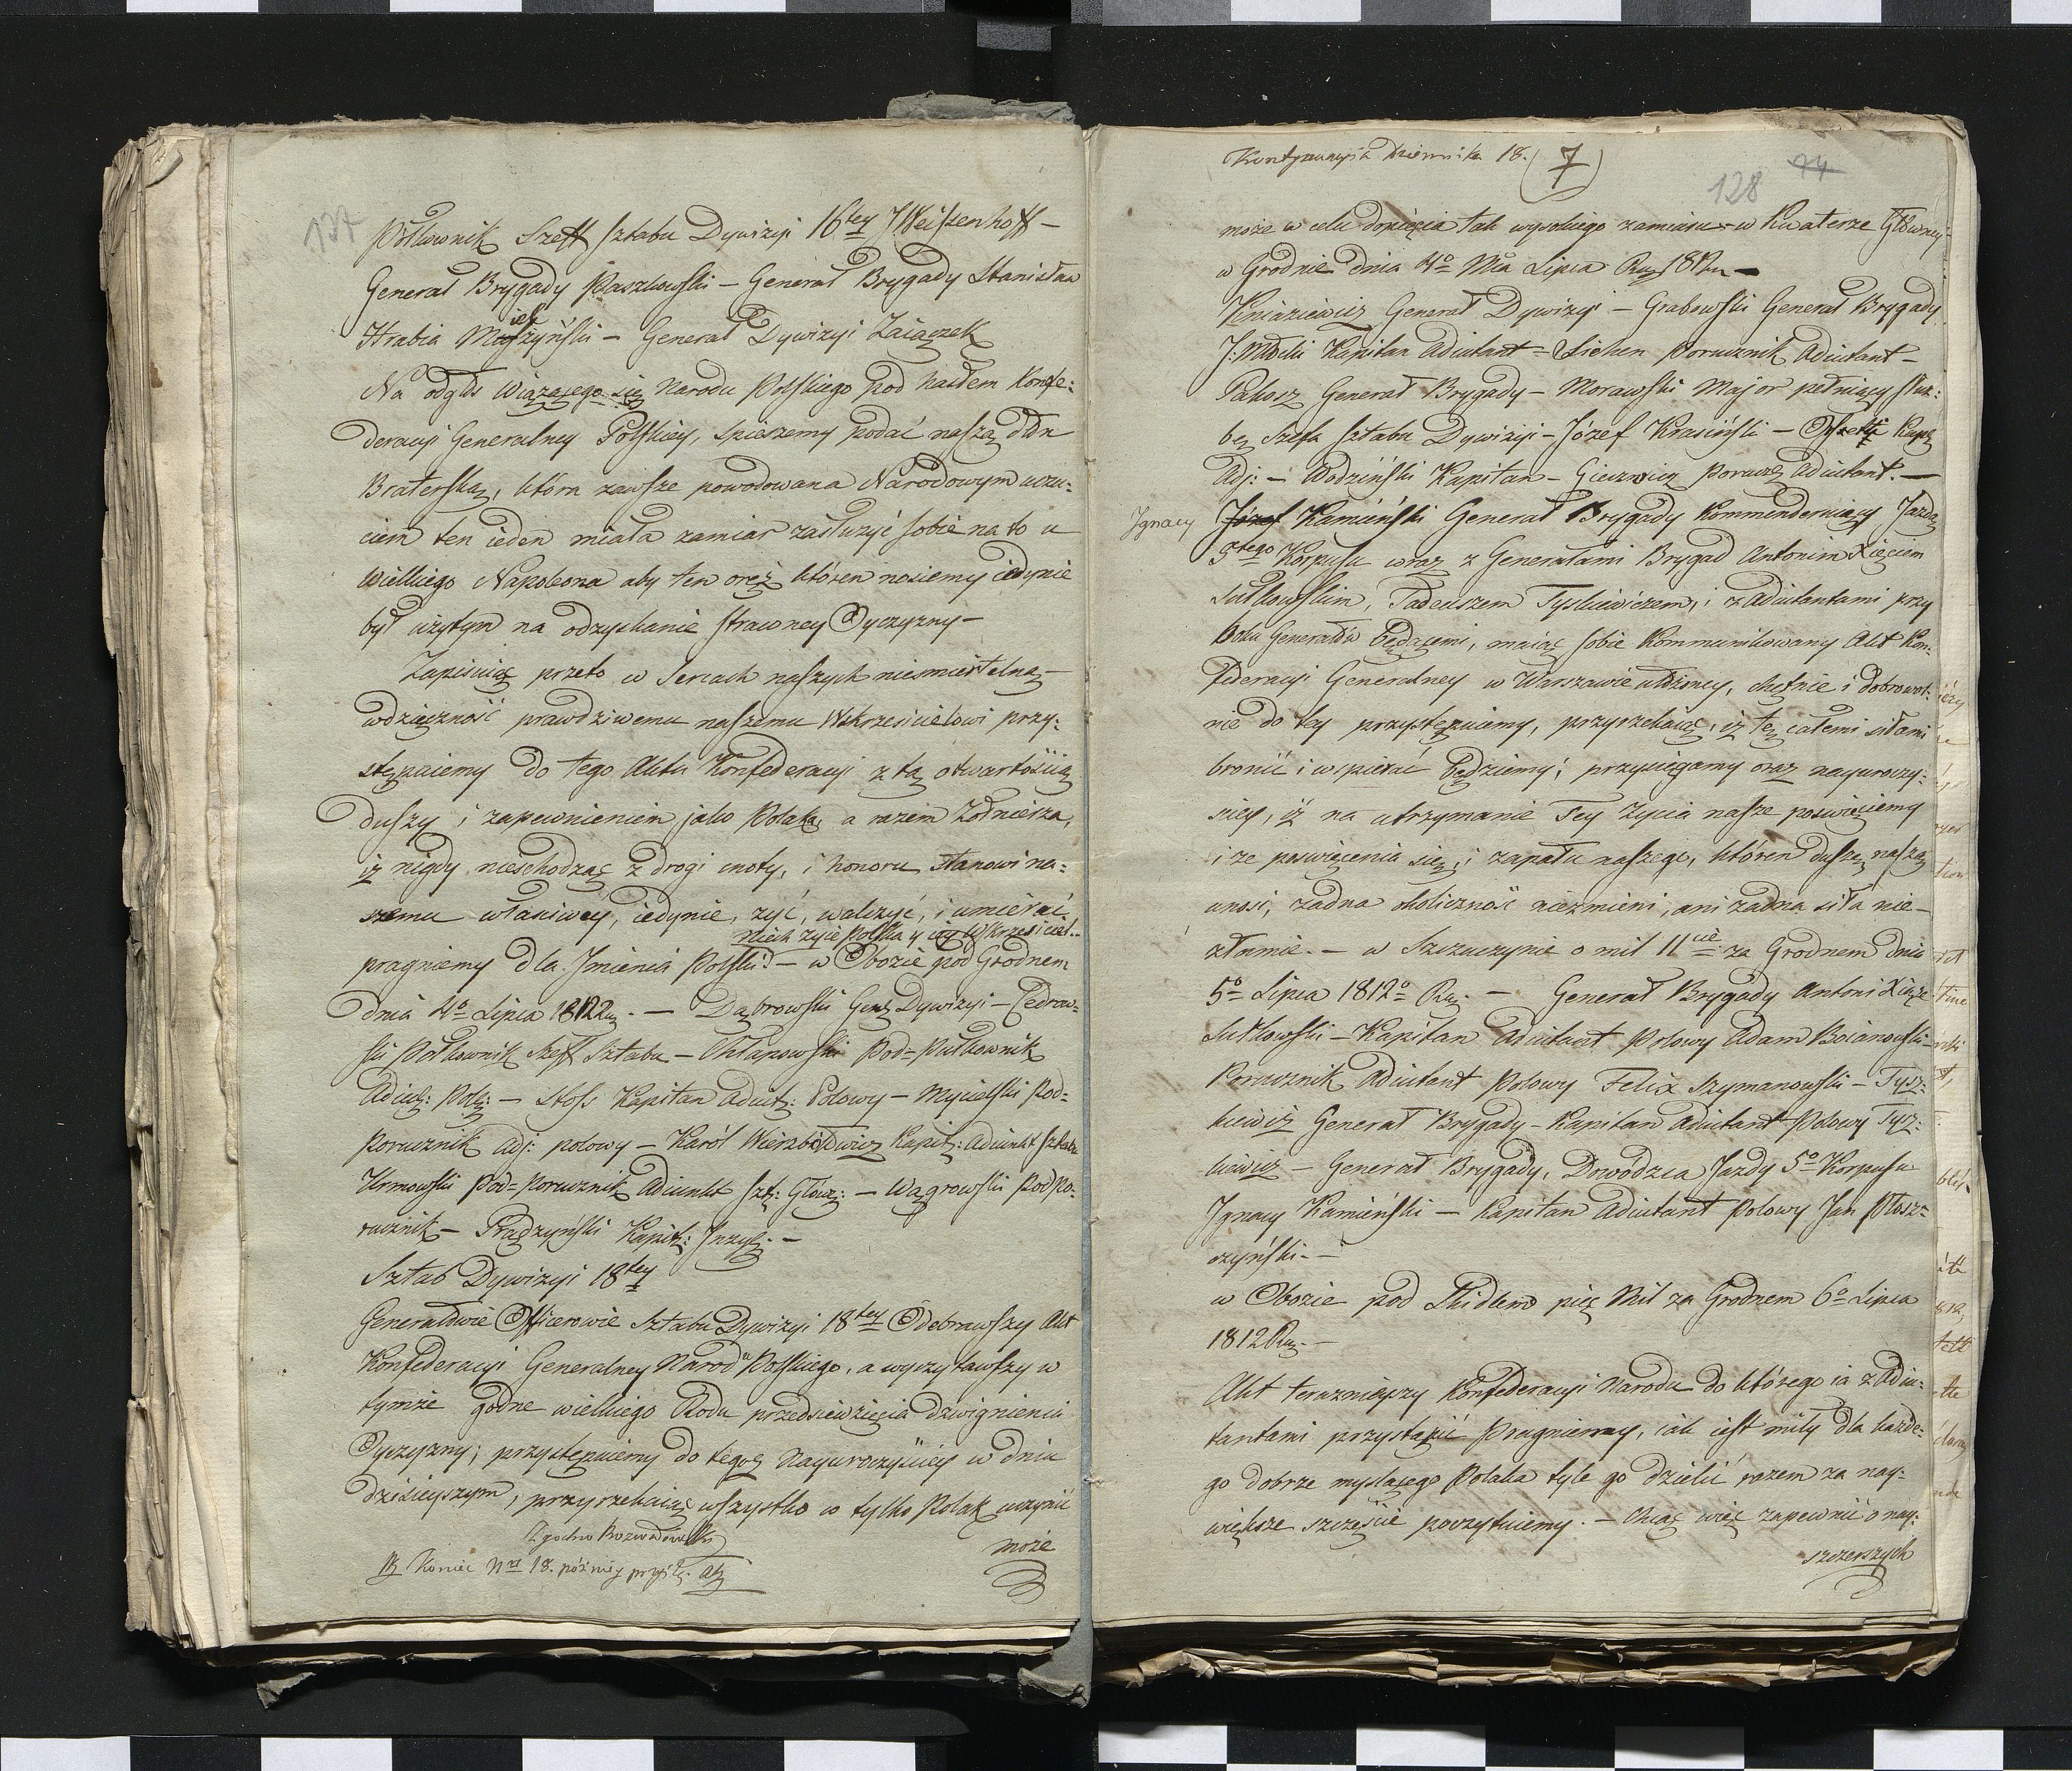 137
Półkownik Szeff sztabu Dywizyi 16tey J Weissenhoff –
Generał Brygady Paszkowski – Generał Brygady Stanisław
Hrabia Mielżyński – Generał Dywizyi Zaiączek
Na odgłos wiążącego się Narodu Polskiego pod hasłem Konfe:
deracyi Generalney Polskiey, spieszemy podać naszą dłoń
Braterską, która zawsze powodowana Narodowym uczu:
ciem ten ieden miała zamiar zasłużyć sobie na to u
Wielkiego Napoleona aby ten oręż któren nosiemy iedynie
był użytym na odzyskanie straconey Oyczyzny –
Zapisuiąc przeto w Sercach naszych niesmiertelną –
wdzięczność prawdziwemu naszemu Wskrzesicielowi przy:
stępuiemy do tego Aktu Konfederacyi z tą otwartością
duszy i zapewnieniem jako Polaka a razem Żołnierza,
iż nigdy nieschodząc z drogi cnoty, i honoru stanowi na:
szemu właściwey, iedynie, żyć, walczyć, i umierać
Niech żyie Polska y iey Wskrzesiciel. –
pragniemy dla Jmienia Polski! – w Obozie pod Grodnem
dnia 4o Lipca 1812 – Dąbrowski Gen Dywizyi – Cedrow:
ski Półkownik Szef Sztabu – Chłapowski Pod=Pułkownik
Adiut: Pol: – Stoss Kapitan Adiut: Polowy – Mycielski Pod=
Porucznik adj: polowy – Karól Wierzbołowicz Kapit: Adiunkt Sztabu
Urmowski Pod=Porucznik Adiunkt Szt: Główn: – Wągrowski Podpo:
rucznik – Prądzyński Kapit: Jnży: –
Sztab Dywizyi 18tey
Generałowie Officerowie Sztabu Dywizyi 18tey Odebrawszy Akt
Konfederacyi Generalney Narodu Polskiego, a wyczytawszy w
tymże godne wielkiego Rodu przedsiewzięcia dzwignienia
Oyczyzny; przystępuiemy do tegoż nayuroczyściey w dniu
dzisieyszym, przyrzekaiąc wszystko co tylko Polak uczynić
może
Zgodno Rozwadowski
Koniec Nru 18. pózniey
Kontynuacyia Dziennika 18. (7)
128 74
może w celu dopięcia tak wysokiego zamiaru – w Kwaterze Główney
w Grodnie dnia 4o Mca Lipca 1812 –
Kniaziewicz Generał Dywizyi – Grabowski Generał Brygady
J: Mlocki Kapitan Adiutant – Sichen Porucznik Adiutant –
Pakosz Generał Brygady – Morawski Major pełniący służ:
bę Szefa Sztabu Dywizyi – Józef Krasiński – Kapt
Adj: – Wodziński Kapitan – Giecewicz Porucz Adiutant. –
Jgnacy Józef Kamieński Generał Brygady Kommenderuiący Jazdą
5tego Korpusu wraz z Generałami Brygad Antonim Xięciem
Sułkowskim, Tadeuszem Tyszkiewiczem, i z Adiutantami przy
boku Generałów będącemi, maiąc sobie kommunikowany Akt Kon:
federacyi Generalney w Warszawie ułożoney, chętnie i dobrowol:
nie do tey przystępuiemy, przyrzekaiąc, iż tę całemi siłami
bronić i wspierać będziemy; przysięgamy oraz nayuroczy:
ściey, iż na utrzymanie Tey życia nasze poświęciemy
i że poswięcenia się, i zapału naszego, któren duszę naszą
unosi, żadna okoliczność niezmieni, ani żadna siła nie –
złamie. – w Szczuczynie o mil 11cie za Grodnem dnia
5o Lipca 1812o – Generał Brygady Antoni Xiąże
Sułkowski – Kapitan Adiutant Polowy Adam Boianowski –
Porucznik Adiutant Polowy Felix Szymanowski – Tysz:
kiewicz Generał Brygady – Kapitan Adiutant Polowy Tysz:
kiewicz – Generał Brygady, Dowodzca Jazdy 5o Korpusu
Jgnacy Kamieński – Kapitan Adiutant Polowy Jan Płosz:
czyński. –
w Obozie pod Skidlem pięć Mil za Grodnem 6o Lipca
1812 –
Akt teraznieyszy Konfederacyi Narodu do którego ia z Adiu:
tantami przystąpić Pragniemy, iak iest miły dla każde:
go dobrze myślącego Polaka tyle go dzielić razem za nay:
większe szczęście poczytuiemy. – Chcąc więc zapewnić o nay:
szczerszych